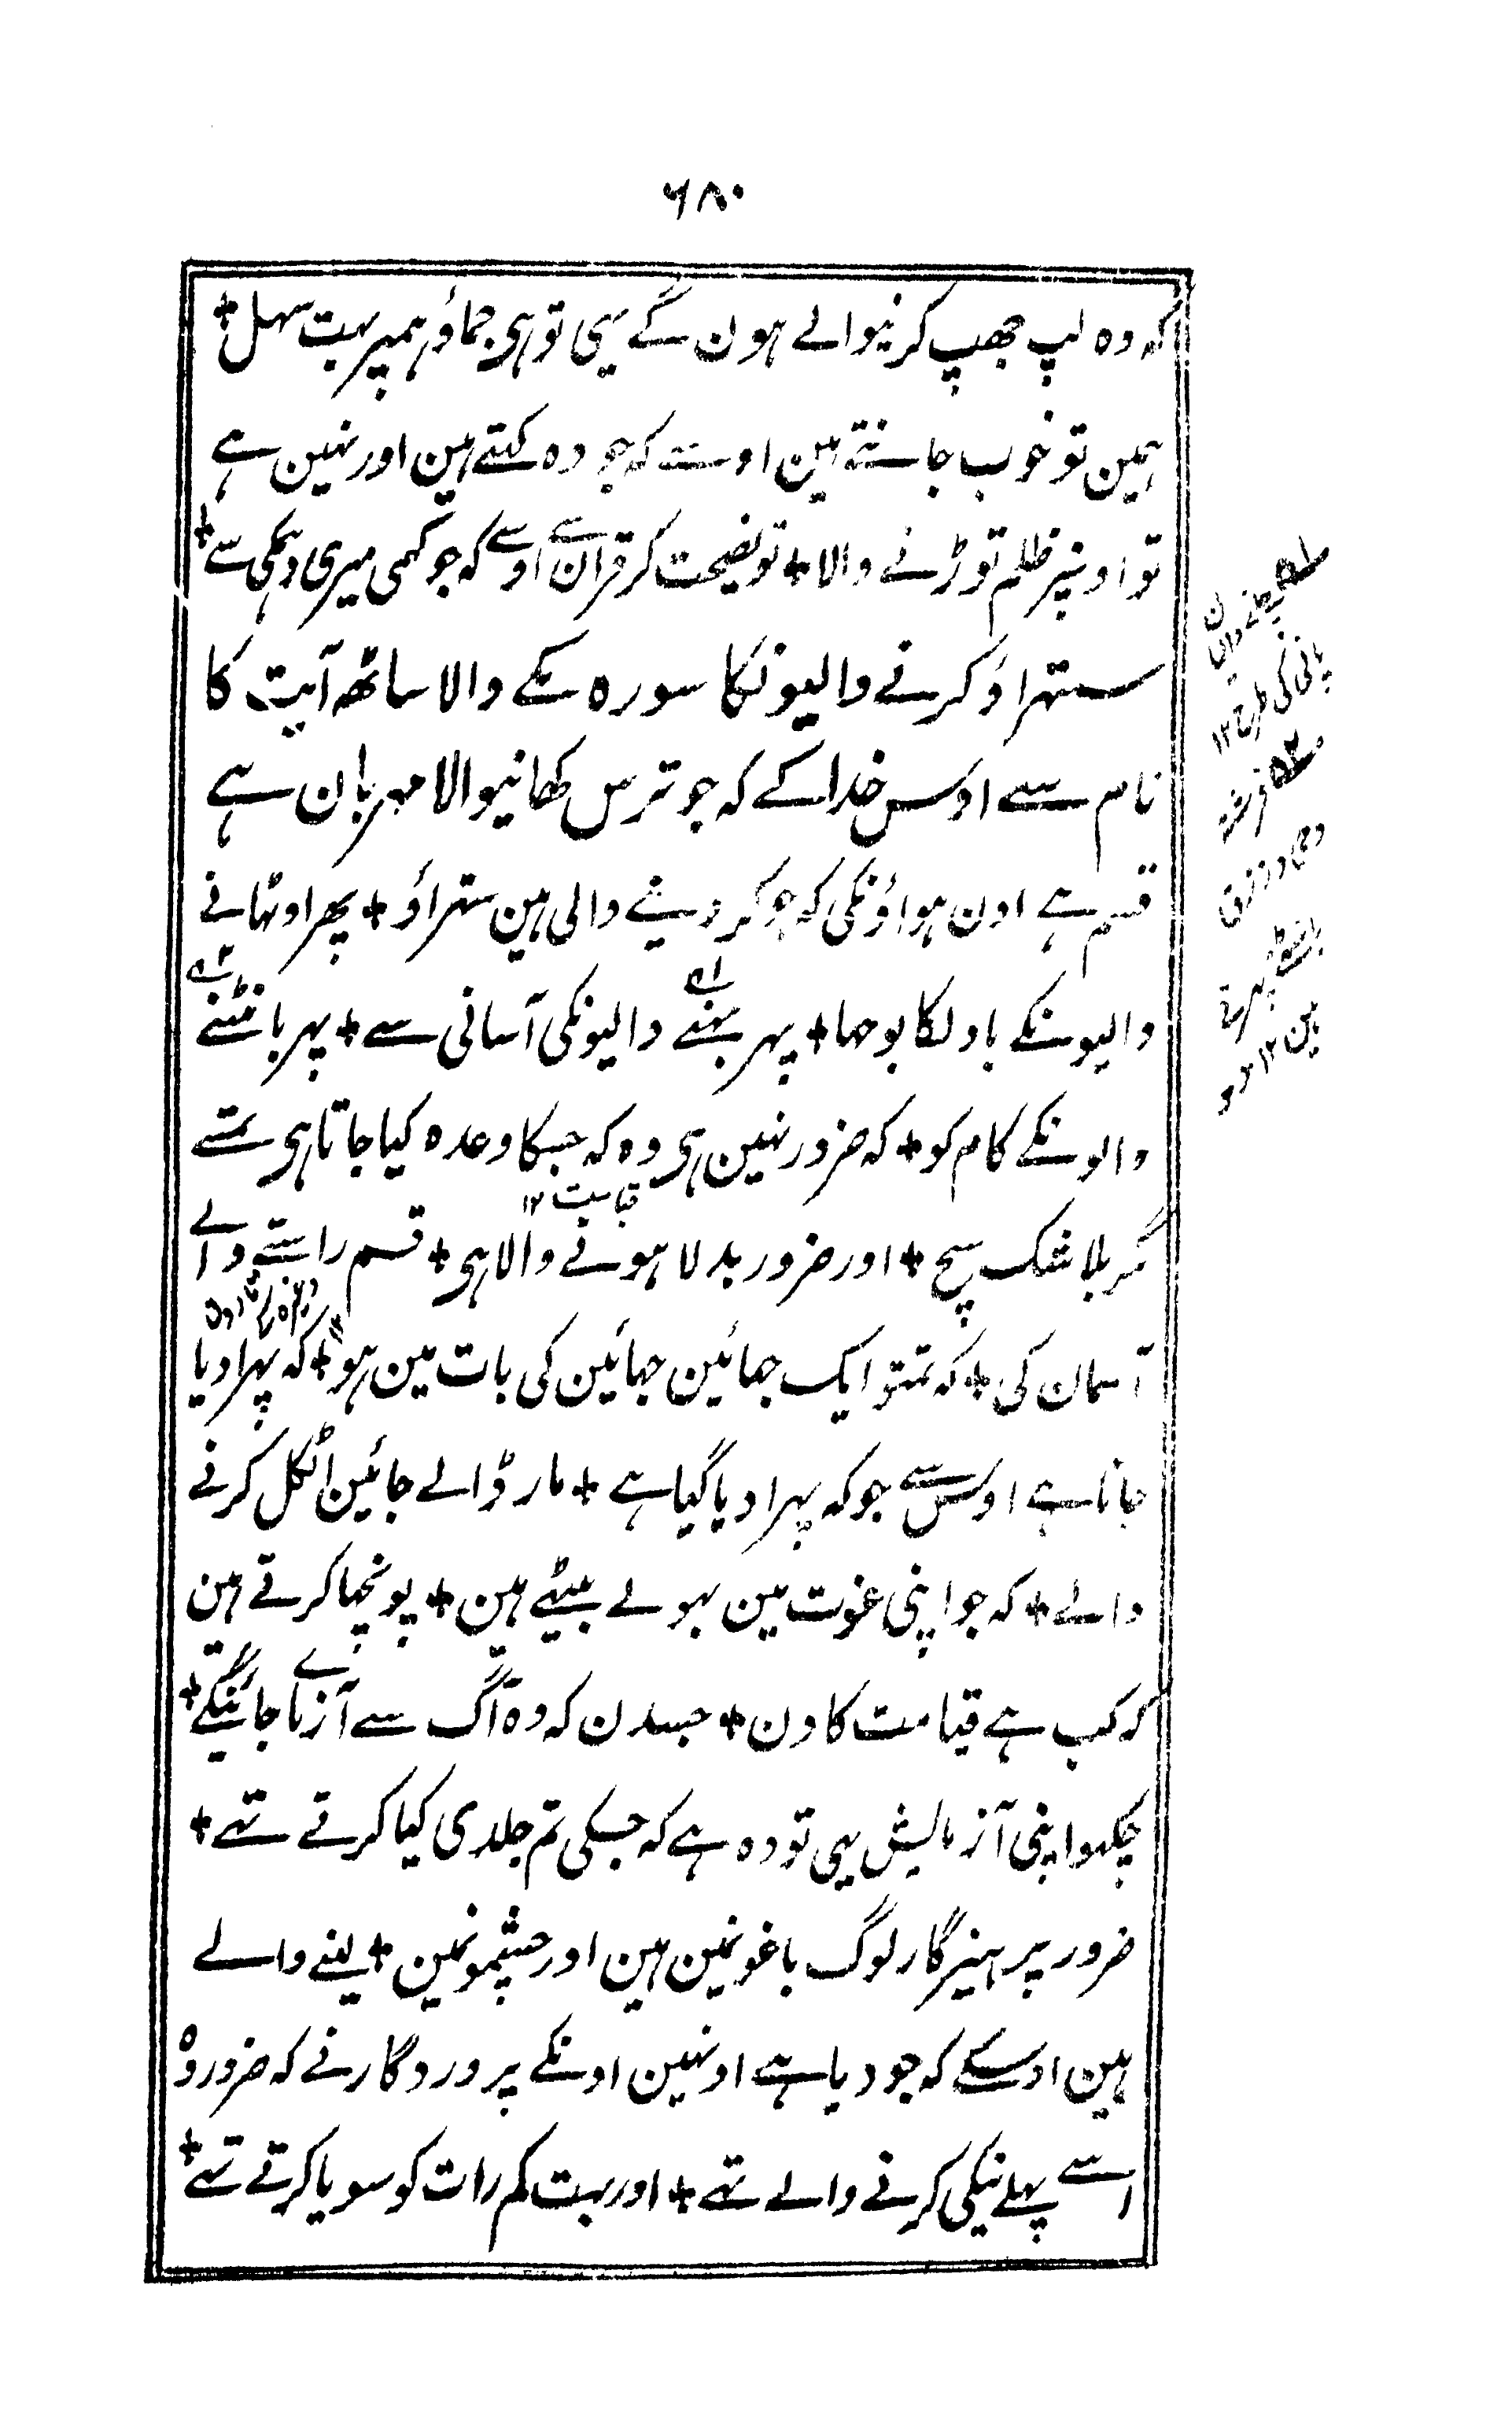 ۶۸۰
کہ وہ لپ جھپ کرنیوالے ہون گے یہی تو ہی جماؤ ہمپر بہت سہل +
ہمین تو خوب جانتے ہین اوسے کہ جو وہ کہتے ہین اور نہین ہے
تو اونپر ظلم توڑنے والا + تو نصیحت کر قرآن سے اوسے کہ جو سہمی میری دہمکی سے +
ستہراؤ کرنے والیونکا سورہ مکے والا ساٹھ آیت کا
نام سے اوس خدا کے کہ جو ترس کھانیوالا مہربان ہے
قسم ہے اون ہواؤنکی کہ جو کر دینے والی ہین ستہراؤ + پھر اوٹہانے
والیونکے بادلکا بوجہا + پہر بہنے والیونکی آسانی سے + پہر بانٹنے
والونکے کام کو + کہ ضرور نہین ہی وہ کہ جسکا وعدہ کیا جاتا ہی تمسے
قیامت ۱۲
مگر بلا شک سچ + اور ضرور بدلا ہونے والا ہی + قسم راستے والے
آسمان کی + کہ تمتو ایک جہائین جہائین کی بات مین ہو + کہ پہرا دیا
جاتا ہے اوس سے جو کہ پہرا دیا گیا ہے + مار ڈالے جائین اٹکل کرنے
والے + کہ جو اپنی غفلت مین بہولے بیٹھے ہین + پونچہا کرتے ہین
کہ کب ہے قیامت کا دن + جسدن کہ وہ آگ سے آزمائے جائینگے +
چکہو اپنی آزمایش یہی تو وہ ہے کہ جسکی تم جلدی کیا کرتے تہے +
ضرور پرہیزگار لوگ باغونمین ہین اور چشمونمین + لینے والے
ہین اوسکے کہ جو دیا ہے اونہین اونکے پروردگار نے کہ ضرور وہ
اسے پہلے نیکی کرنے والے تہے + اور بہت کم رات کو سویا کرتے تہے +
پانی کی طرح ۱۲
ہین ۱۲